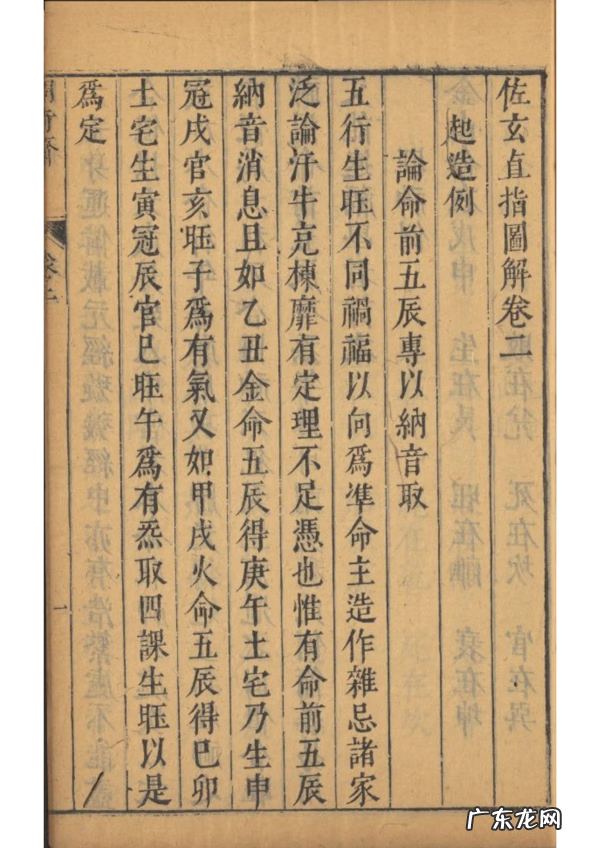 佐玄直指圖解卷二
起造例
論命前五辰專以納音取
五行生旺不同禍福以向爲準命主造作雜忌諸家
泛論汗牛充棟靡有定理不足憑也惟有命前五辰
納音消息且如乙丑金命五辰得庚午土宅乃生申
冠戌官亥旺子爲有氣又如甲戌火命五辰得己卯
土宅生寅冠辰官巳旺午爲有炁取四課生旺以是
爲定
卷二
一
广东龙网